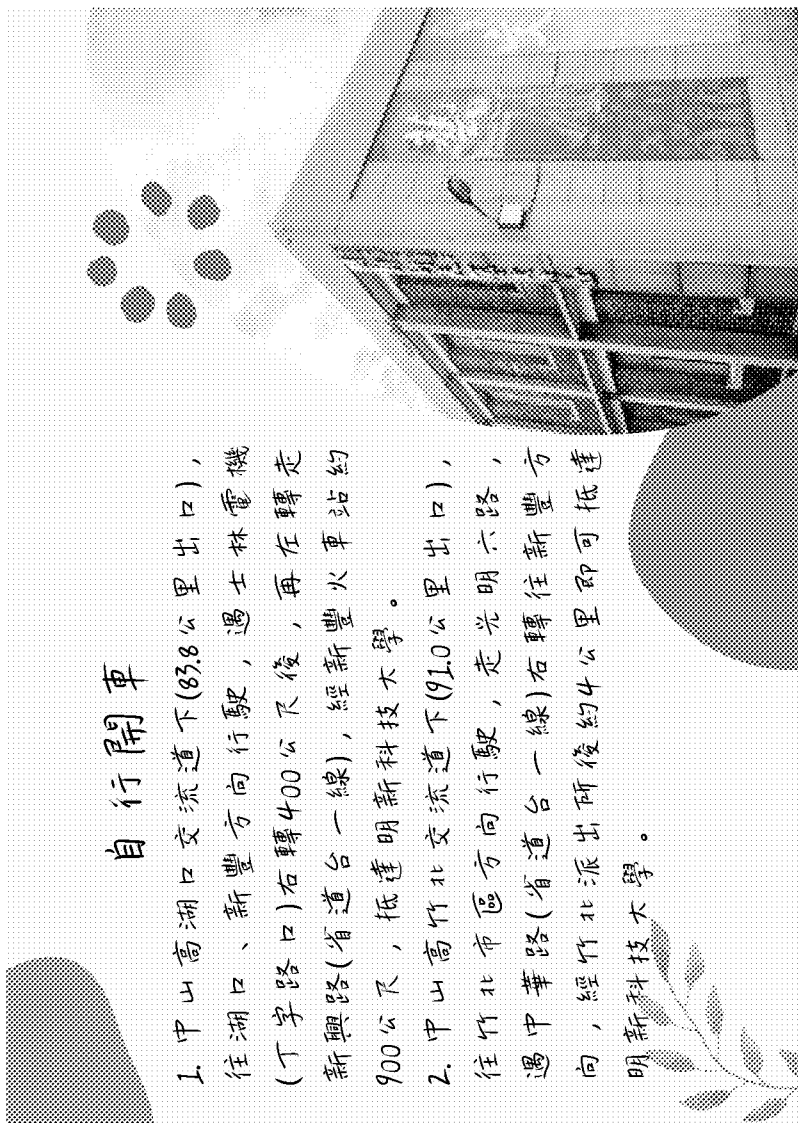 自行開車
1. 中山高湖口交流道下(83.8公里出口),
往湖口、新豐方向行駛,遇士林電機
(丁字路口)右轉400公尺後,再左轉走
新興路(省道台一線),經新豐火車站約
900公尺,抵達明新科技大學。
2. 中山高竹北交流道下(91.0公里出口),
往竹北市區方向行駛,走光明六路,
遇中華路(省道台一線)右轉往新豐方
向,經竹北派出所後約4公里即可抵達
明新科技大學。